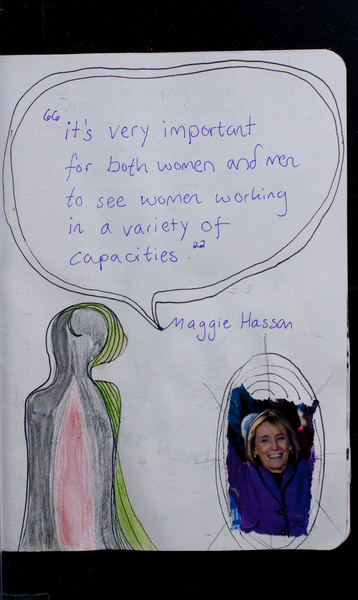 "it's very important
for both women and men
to see women working
in a variety of
capacities."
Maggie Hassan